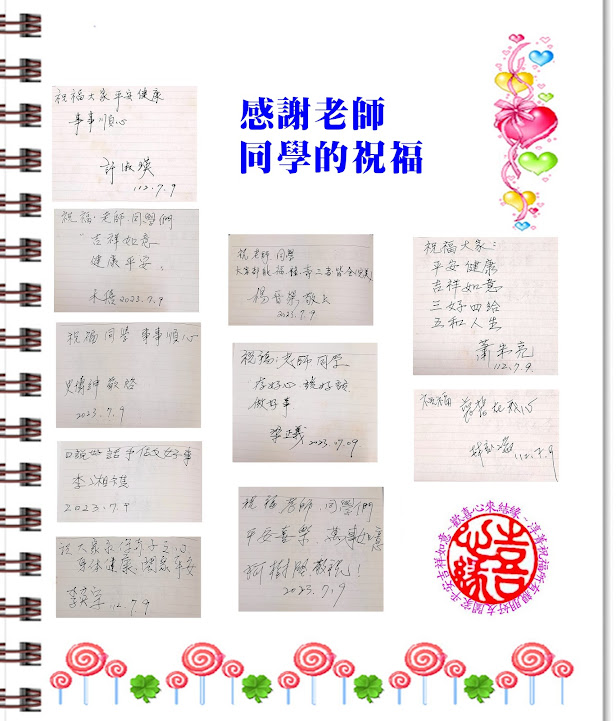 感謝老師
同學的祝福
祝福大家平安健康
事事順心
許淑暎
112.7.9
祝福:老師.同學們
吉祥如意
健康平安,
2023.7.9
祝福同學 事事順心
敬啓
2023.7.9
口說好話手做好事
李湘祺
2023.7.9
身体健康、闔家平安
112.7.9
祝老師同學
楊晉榮敬上
2023.7.9
祝福:老師同學
存好心 說好話
做好事
梁正義 2023.07.09
祝福老師.同學們
平安喜樂.萬事如意
阿樹 敬祝!
2023.7.9
祝福大家:
平安健康
吉祥如意
三好四給
五和人生
蕭朱亮
112.7.9.
祝福
112.7.9
喜心緣